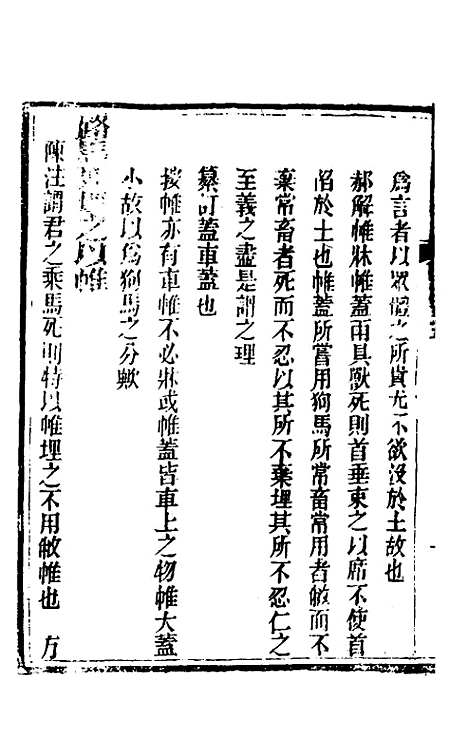 爲言者以眾體之所貴尤不欲沒於土故也
郝解帷牀帷蓋雨具獸死則首垂束之以席不使首
陷於土也帷蓋所嘗用狗馬所常畜常用者敝而不
棄常畜者死而不忍以其所不棄埋其所不忍仁之
至義之盡是謂之理
纂訂蓋車蓋也
按帷亦有車帷不必牀或帷蓋皆車上之物帷大蓋
小故以爲狗馬之分歟
路馬死埋之以帷
陳注謂君之乘馬死則特以帷埋之不用敝帷也 方